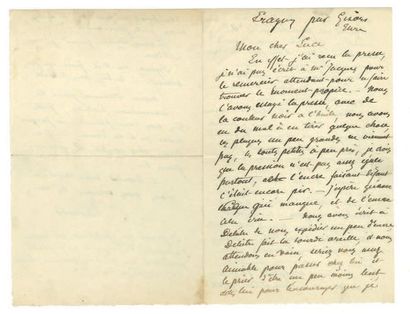 Eragny par Gisors
Eure
Mon cher Luce
En effet j'ai reçu la presse,
je n'ai pas écrit à Mr Jacques pour
le remercier attendant pour ce faire
trouver le moment propice. — Nous
l'avons essayé la presse, avec de
la couleur noir à l'huile, nous avons
eu du mal à en tirer quelque chose,
les planches un peu grandes ne viennent
pas, les toutes petites à peu près, je crois
que la pression n'est pas assez égale
partout, l'encre faisant défaut
c'était encore pis. — J'espère
qui manque, et de l'encre
cela ira. — Nous avons écrit à
Delâtre de nous expédier un peu d'encre
Delâtre fait la sourde oreille, et nous
attendons en vain, seriez vous assez
aimable pour passer chez lui et
le prier d'être un peu moins lent
dites lui pour l'encourager que je